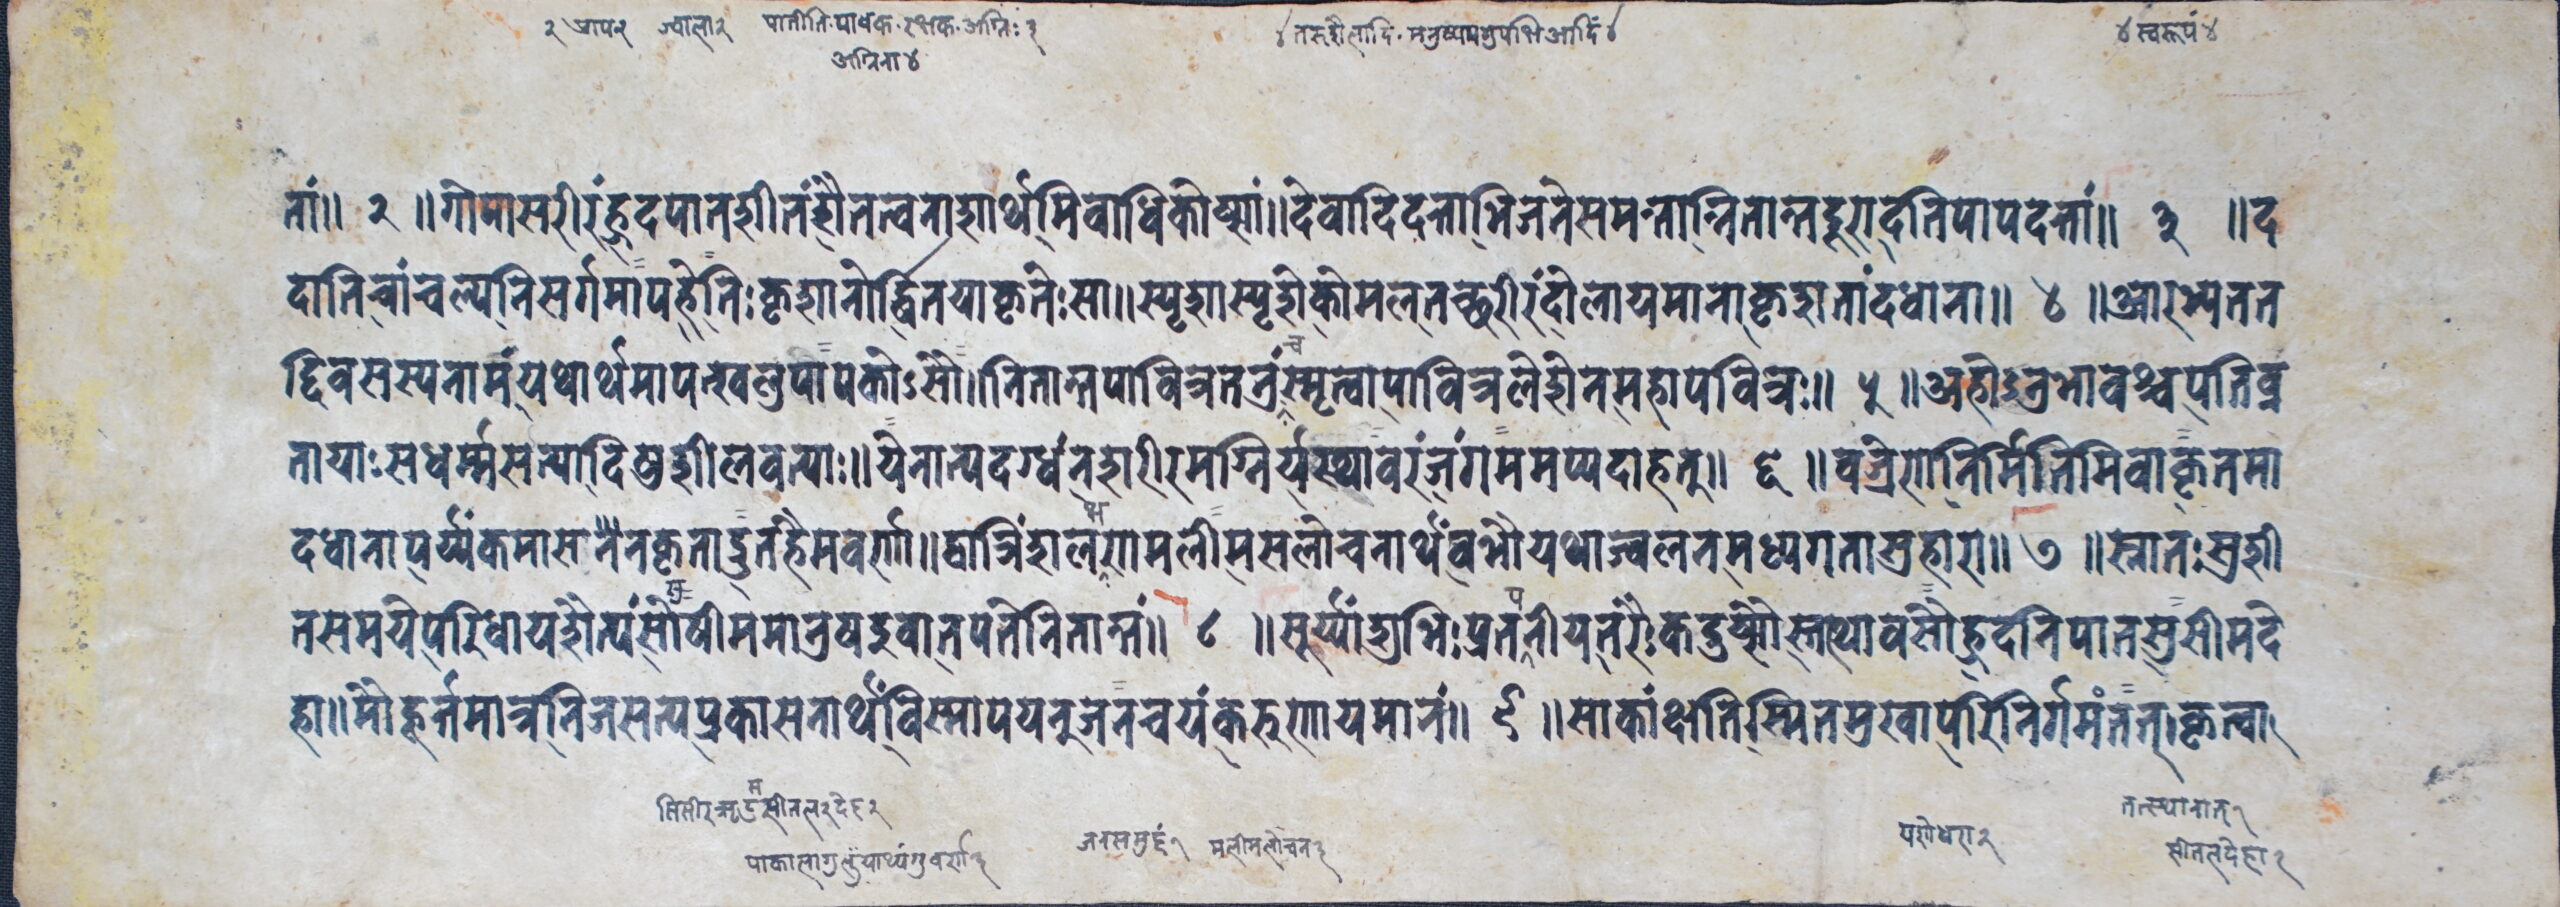 २ आप२ ज्वाला२ पातीति पावक रक्षक अग्निः३ ४तरुशैलादि मनुष्यपशुपक्षिआदिं४ ४स्वरूपं४
अग्निना४
तां॥ २ ॥गोमासरीरंह्रुदपानशीतंशैतत्वनाशार्थमिवाधिकोष्मां॥देवादिदत्ताभिजनेसमन्तान्नितान्तदूरादतिपापदत्तां॥ ३ ॥द
दातिचांचल्यनिसर्गमापहेतिःकृशानोर्द्धितयाकृतेःसा॥स्पृशास्पृशेकोमलतच्छरीरंदोलायमानाकृशतांदधाना॥ ४ ॥आरभ्यतत
द्दिवसस्यनामंयथार्थमापत्खलुपापकोऽसौ॥नितान्तपावित्रतनुंस्मृत्वापावित्रलेशेनमहापवित्रः॥ ५ ॥अहोऽनुभावश्चपतिव्र
तायाःसधर्म्मसत्यादिसुशीलवत्याः॥येनात्यदग्धंनशरीरमग्निर्यस्थावरंजंगममप्यदाहतु॥ ६ ॥वज्रेणनिर्मितिमिवाकृतमा
दधानापर्य्यंकमासनेनकृताद्भुतहेमवर्णा॥द्वात्रिंशलक्षणमलीमसलोचनार्थंवभौयथाज्वलनमध्यगतासुहारा॥ ७ ॥स्नातःसुशी
तसमयेपरिधायशैत्यंसौषीममानुषइवातपतेनितान्तं॥ ८ ॥सूर्य्यांशुभिःप्रतपनीयतरैःकदुष्णैस्तत्थावसौह्रुदनिपानसुसीमदे
हा॥मौहूर्त्तमात्रनिजसत्यप्रकासनार्थंविस्मापयनुजनचयंकरुणायमानं॥ ९ ॥साकांक्षतिस्मितमुखापरिनिर्गमंतत्कृत्वा
तत्स्थानात्१
जनसमुहं१ मलीमलोचन३ पयोधरा२ सीतलदेहा२